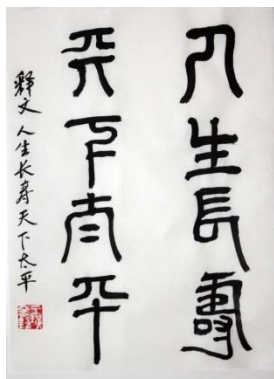 人生長壽
天下太平
释文 人生长寿天下太平